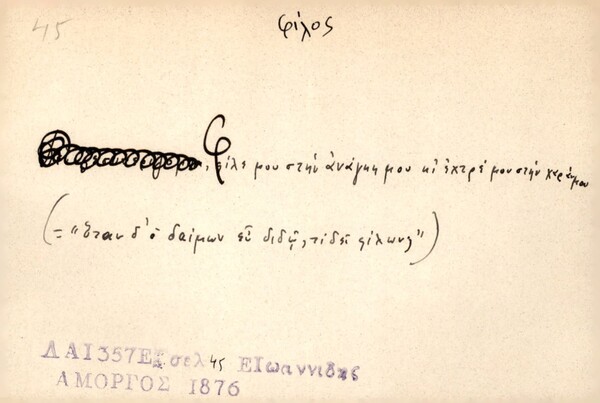 45
φίλος
Φίλε μου στὴν ἀνάγκη μου κι ἐχτρέ μου στὴν χαρά μου
(= "ὅταν δ' ὁ δαίμων εὖ διδῷ, τί δεῖ φίλων;")
ΔΑΙ357Ε σελ 45 ΕΙωαννιδης
ΑΜΟΡΓΟΣ 1876